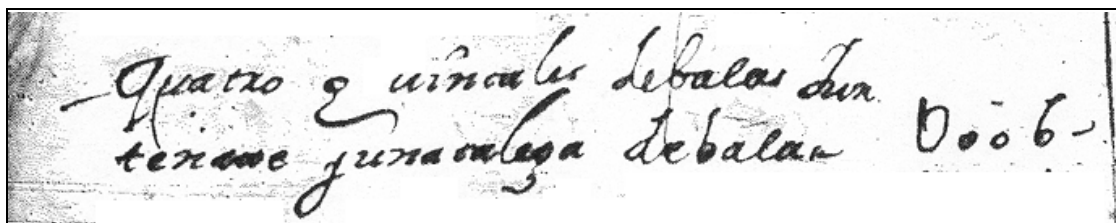 Quatro quintales debalas
yunatalega debalas U006